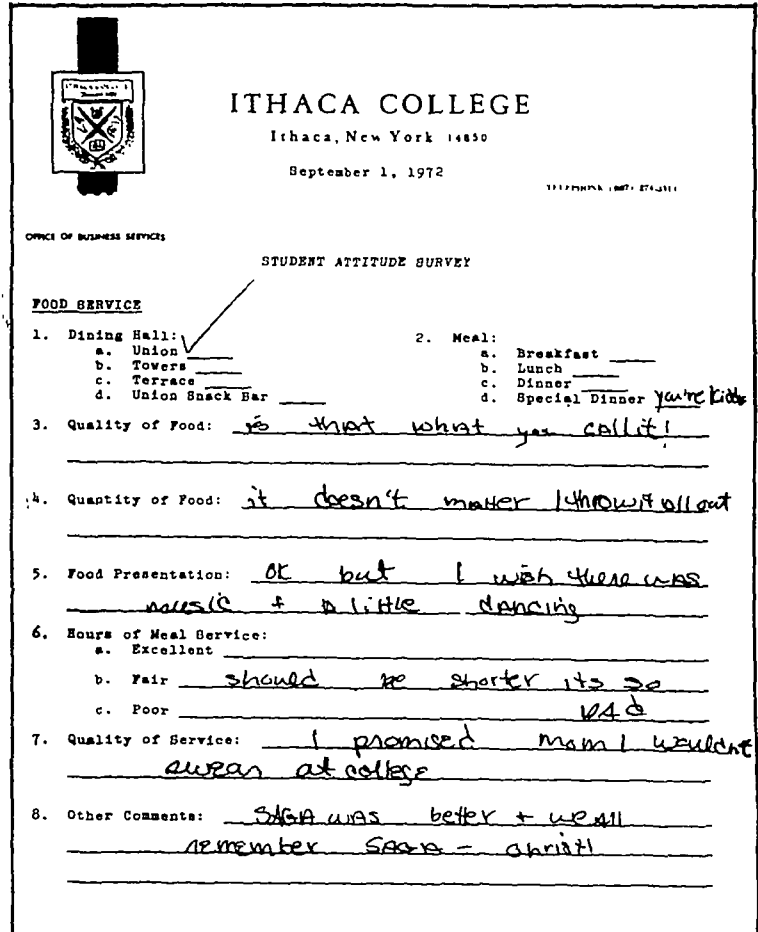 ITHACA COLLEGE
Ithaca, New York 14850
September 1, 1972
OFFICE OF BUSINESS SERVICES
STUDENT ATTITUDE SURVEY
FOOD SERVICE
1. Dining Hall: 2. Meal:
a. Union ____ a. Breakfast ____
b. Towers ____ b. Lunch ____
c. Terrace ____ c. Dinner ____
d. Union Snack Bar ____ d. Special Dinner you're kidding
3. Quality of Food: is that what you call it!
4. Quantity of Food: it doesn't matter I throw it all out
5. Food Presentation: OK but I wish there was
music + a little dancing
6. Hours of Meal Service:
a. Excellent
b. Fair should be shorter its so
c. Poor bad
7. Quality of Service: I promised mom I wouldnt
swear at college
8. Other Comments: SAGA was better + we all
remember SAGA - christ!